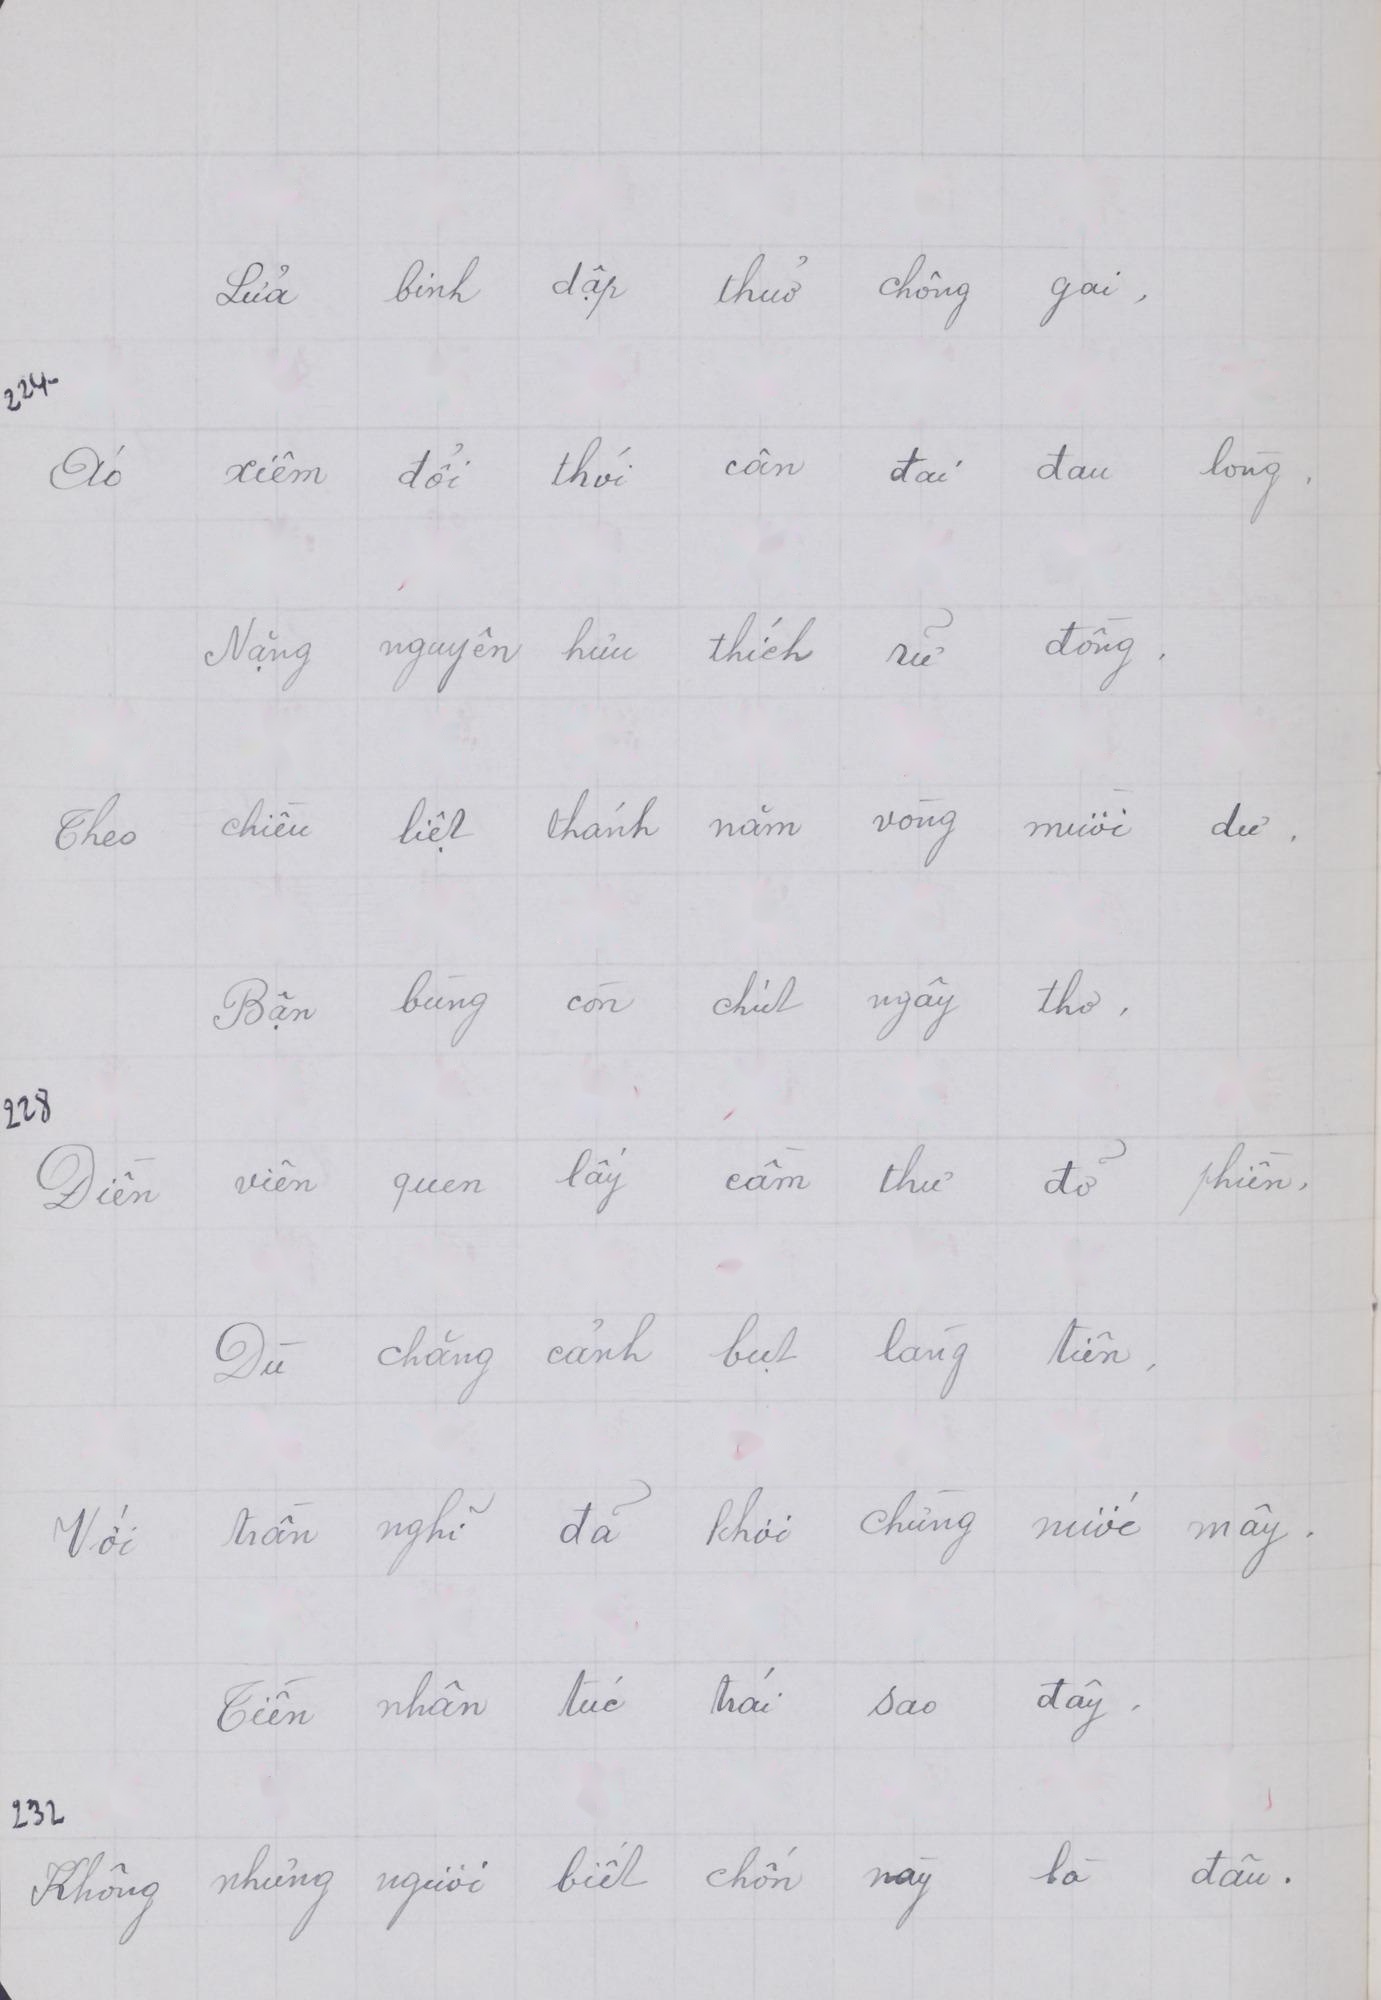 Lửa binh dập thuở chông gai,
224
Áo xiêm đổi thói cân đai đau lòng,
Nặng nguyên hữu thích rữ đồng,
Theo chiều liệt thánh năm vòng mười dư,
Bận bùng còn chút ngây thơ,
228
Điền viên quen lấy cầm thư đỡ phiền,
Dù chăng cảnh bụt làng tiên,
Với trần nghĩ đã khỏi chừng nước mây.
Tiền nhân túc trái sao đây,
232
Không nhưng người biết chốn này là đâu.